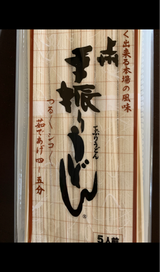 く出来る本場の風味
手振りうどん
てぶりうどん
つる〜シコ〜
茹であげ四〜五分
5人前